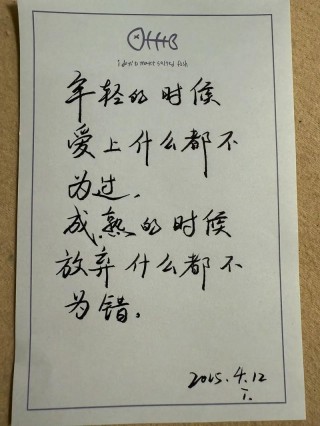 年轻的时候
爱上什么都不
为过，
成熟的时候
放弃什么都不
为错。
2015.4.12